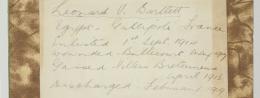 Leonard V. Bartlett
Egypt - Gallipoli, France
Enlisted 1st Sept. 1914
wounded Bullecourt May 1917
Gassed Villers Bretonneux
April 1918
discharged February 1919